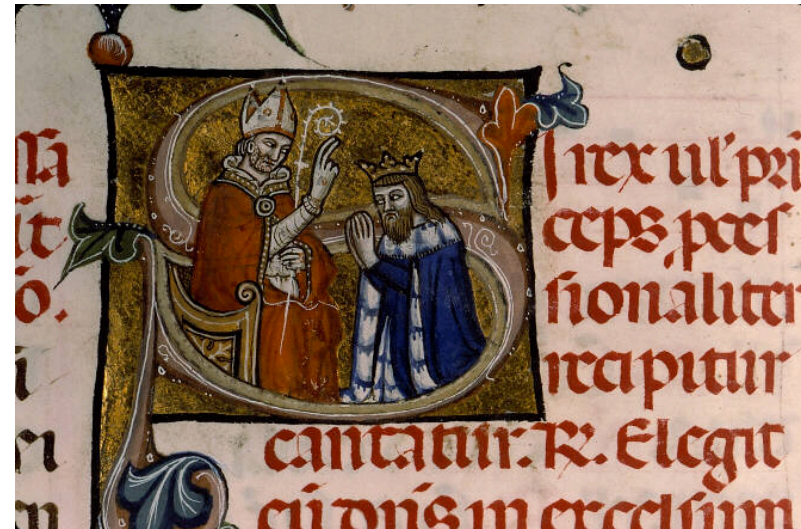 SI rex ul' pri
ceps pces
sionaliter
recipitur
cantatur. R. Elegit
eū dn̄s in excelsum